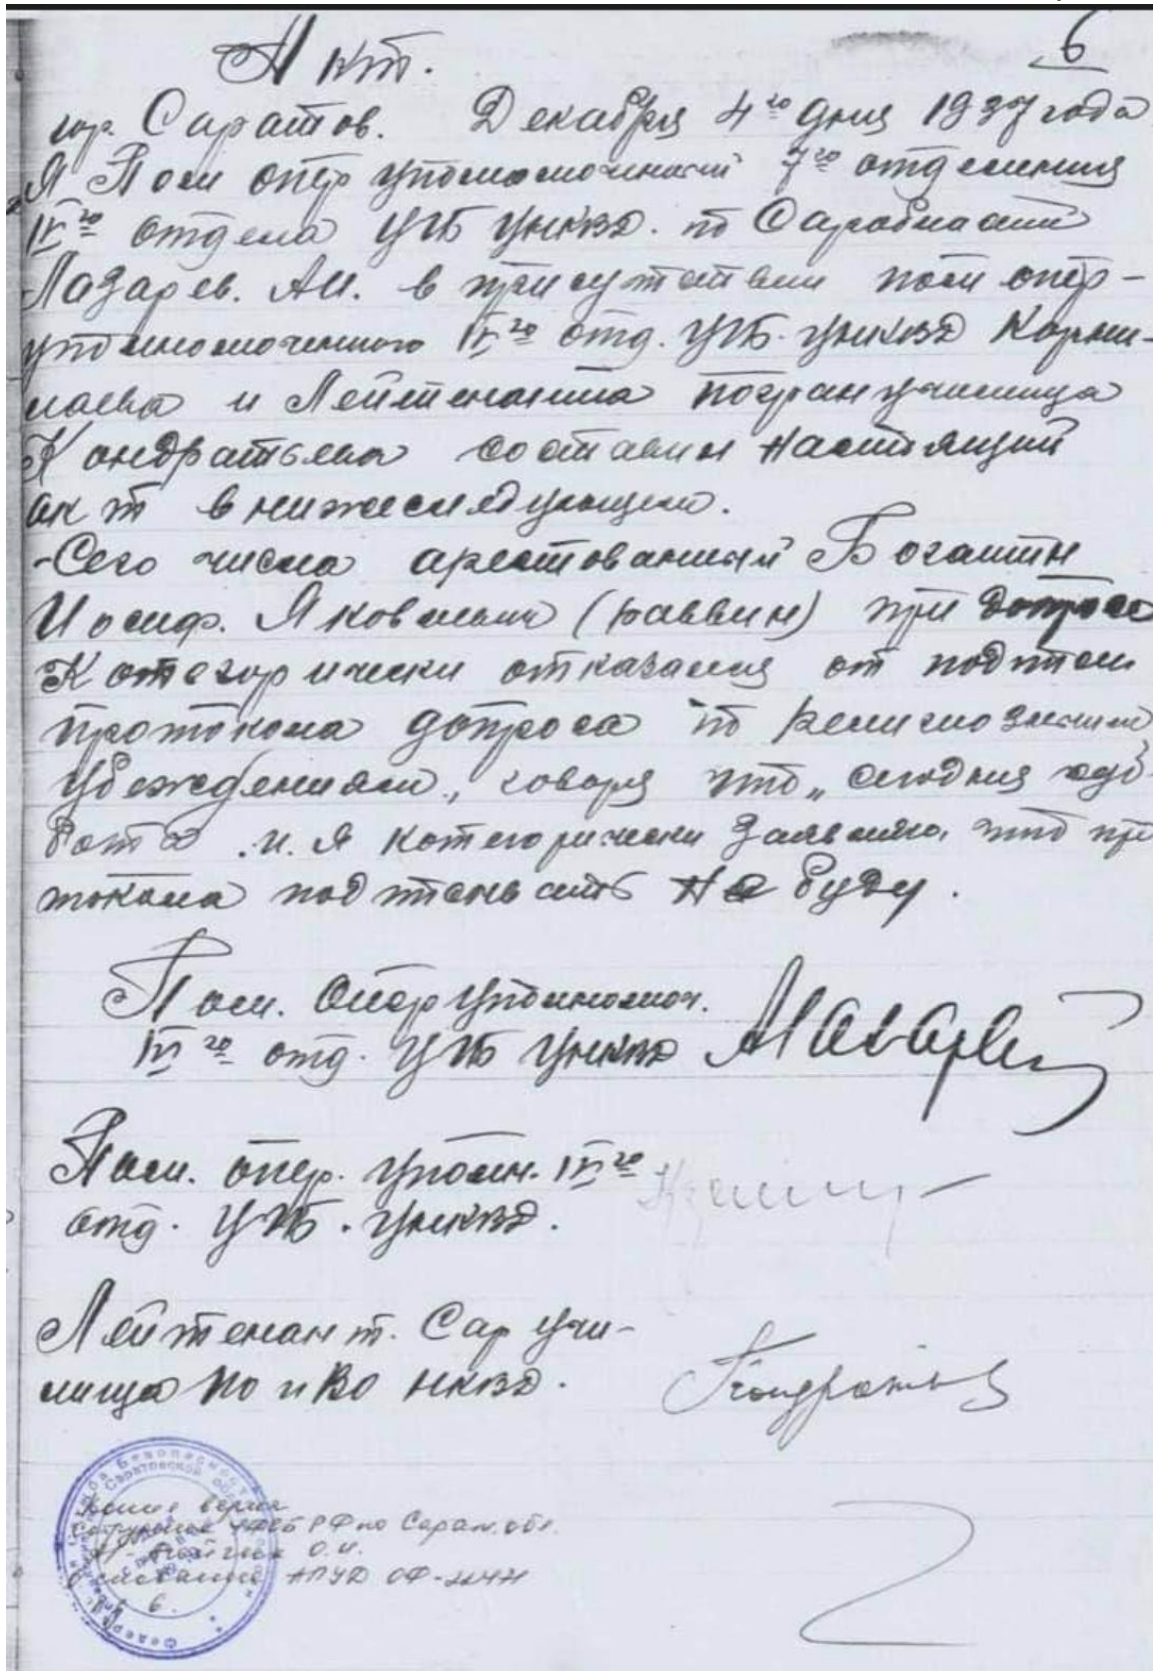 6
Акт.
гор. Саратов. Декабря 4го дня 1937 года
Я Пом опер уполномоченный 7го отделения
IVго отдела УГБ УНКВД. по Саробласти
Лазарев. АИ. в присутствии пом опер-
уполномоченного IVго отд. УГБ. УНКВД Корни-
лаева и Лейтенанта погранучилища
Кондратьева составил настоящий
акт в нижеследующем.
-Сего числа арестованный Богатин
Иосиф. Яковлевич (раввин) при допросе
Категорически отказался от подписи
протокола допроса по религиозным
убеждениям, говоря что „сегодня
и я категорически заявляю, что про
токола подписывать не буду.
Пом. Оперуполномоч.
IVго отд. УГБ УНКВД АЛазарев
Пом. опер. уполн. IVго
отд. УГБ. УНКВД.
Лейтенант. Сар учи-
лища ПО и ВО НКВД. Кондратьев
Копия верна
Сотрудник УФСБ РФ по Сарат. обл.
О.И.
Основание АПУД ОФ-
6.